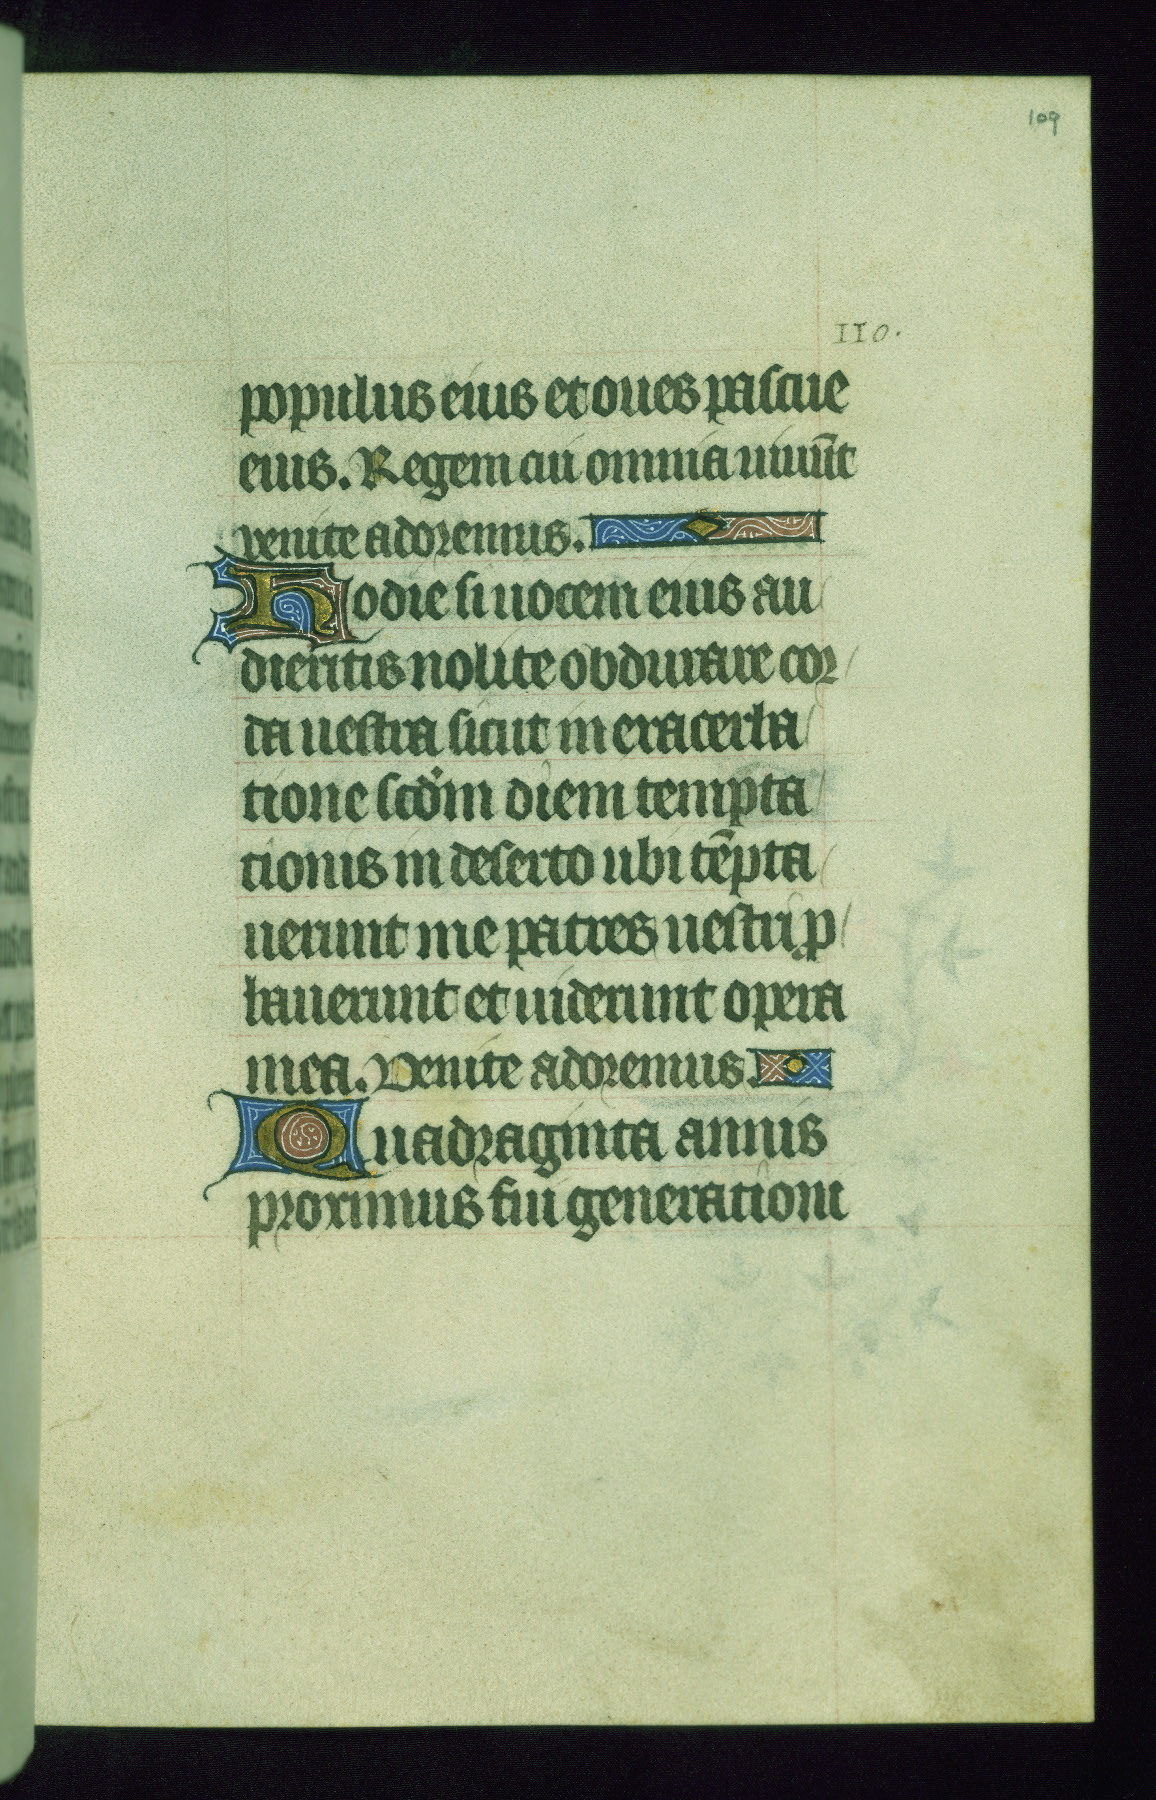 109
110.
populus eius et oues pascue
eius. Regem cui omnia uiuūt
venite adoremus.
Hodie si uocem eius au
dieritis nolite obdurare cor
da uestra sicut in exacerba
tione scdm diem tempta
tionis in deserto ubi tēpta
uerunt me patres uestri p
bauerunt et uiderunt opera
mea. Venite adoremus.
Quadraginta annis
proximus fui generationi